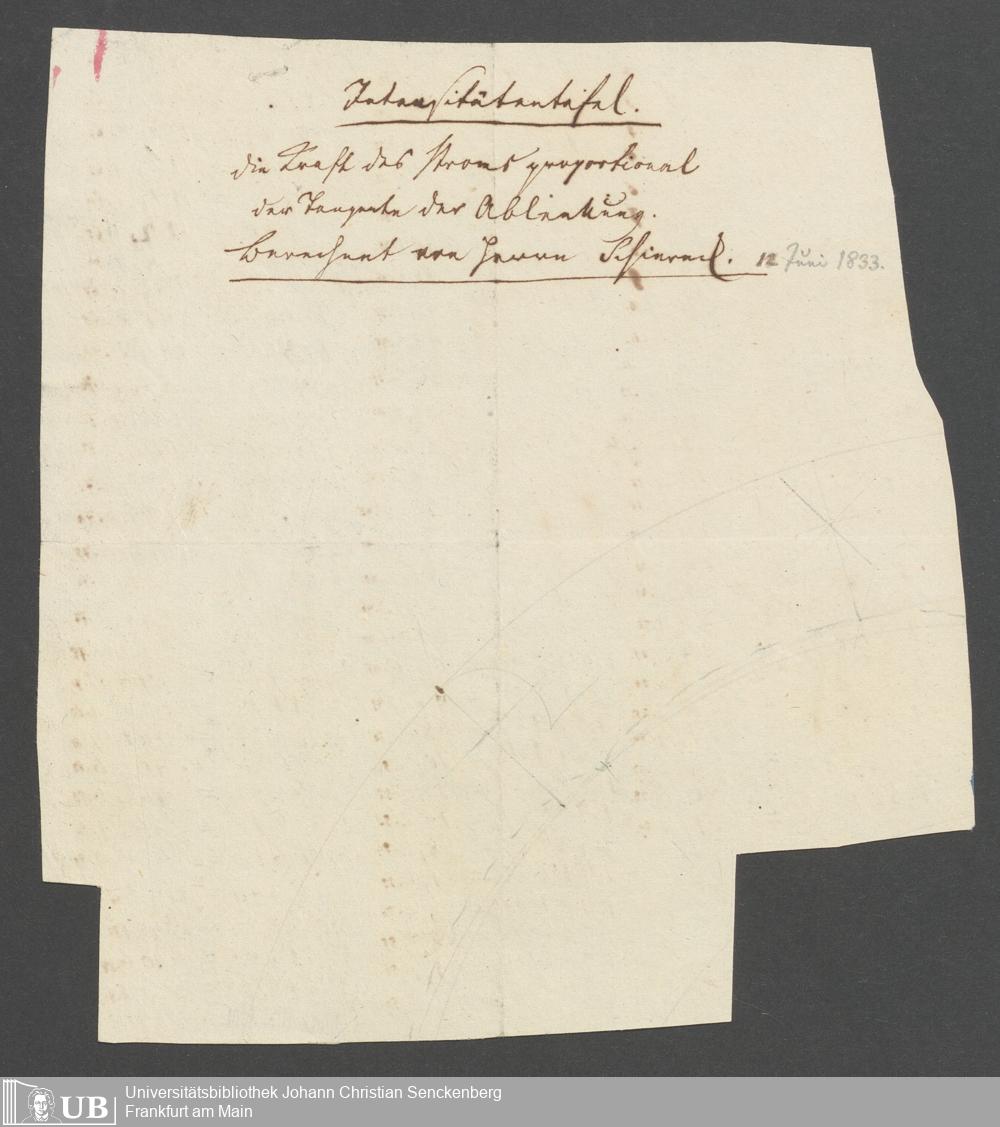 Intensitätentafel.
die Kraft des Stroms proportional
der Tangente der Ablenkung.
Berechnet von Herrn 12 Juni 1833.
UB
Universitätsbibliothek Johann Christian Senckenberg
Frankfurt am Main